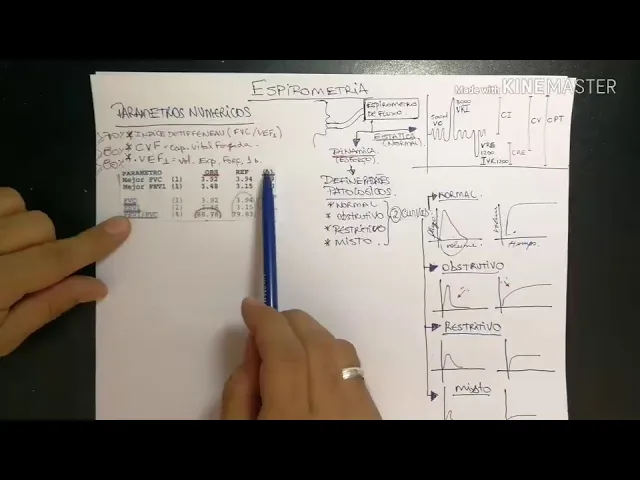 Made with KINEMASTER
ESPIROMETRIA
PARAMETROS NUMERICOS
70% * INDICE DE TIFFENEAU (FVC/VEF1)
80% * CVF = Cap. vital Forçada.
80% * VEF1 = Vol. Exp. Forç. 1s.
PARAMETRO OBS REF
Mejor FVC (l) 3.92 3.94
Mejor FEV1 (l) 3.48 3.15
FVC (l) 3.92 3.94
(l) 3.48 3.15
FEV1/FVC (%) 88.78 79.83
ESPIROMETRO DE FLUXO
ESTÁTICA (NORMAL)
DINAMICA (ESFORÇO)
DEFINERDADES PATOLOGICOS
* NORMAL
* OBSTRUTIVO
* RESTRITIVO
* MISTO
2 curvas
500ml VC
3000 VRI
VRE 1200
VR 1200
CI
CRF
CV
CPT
NORMAL
Fluxo
Volume
tempo
OBSTRUTIVO
RESTRITIVO
MISTO